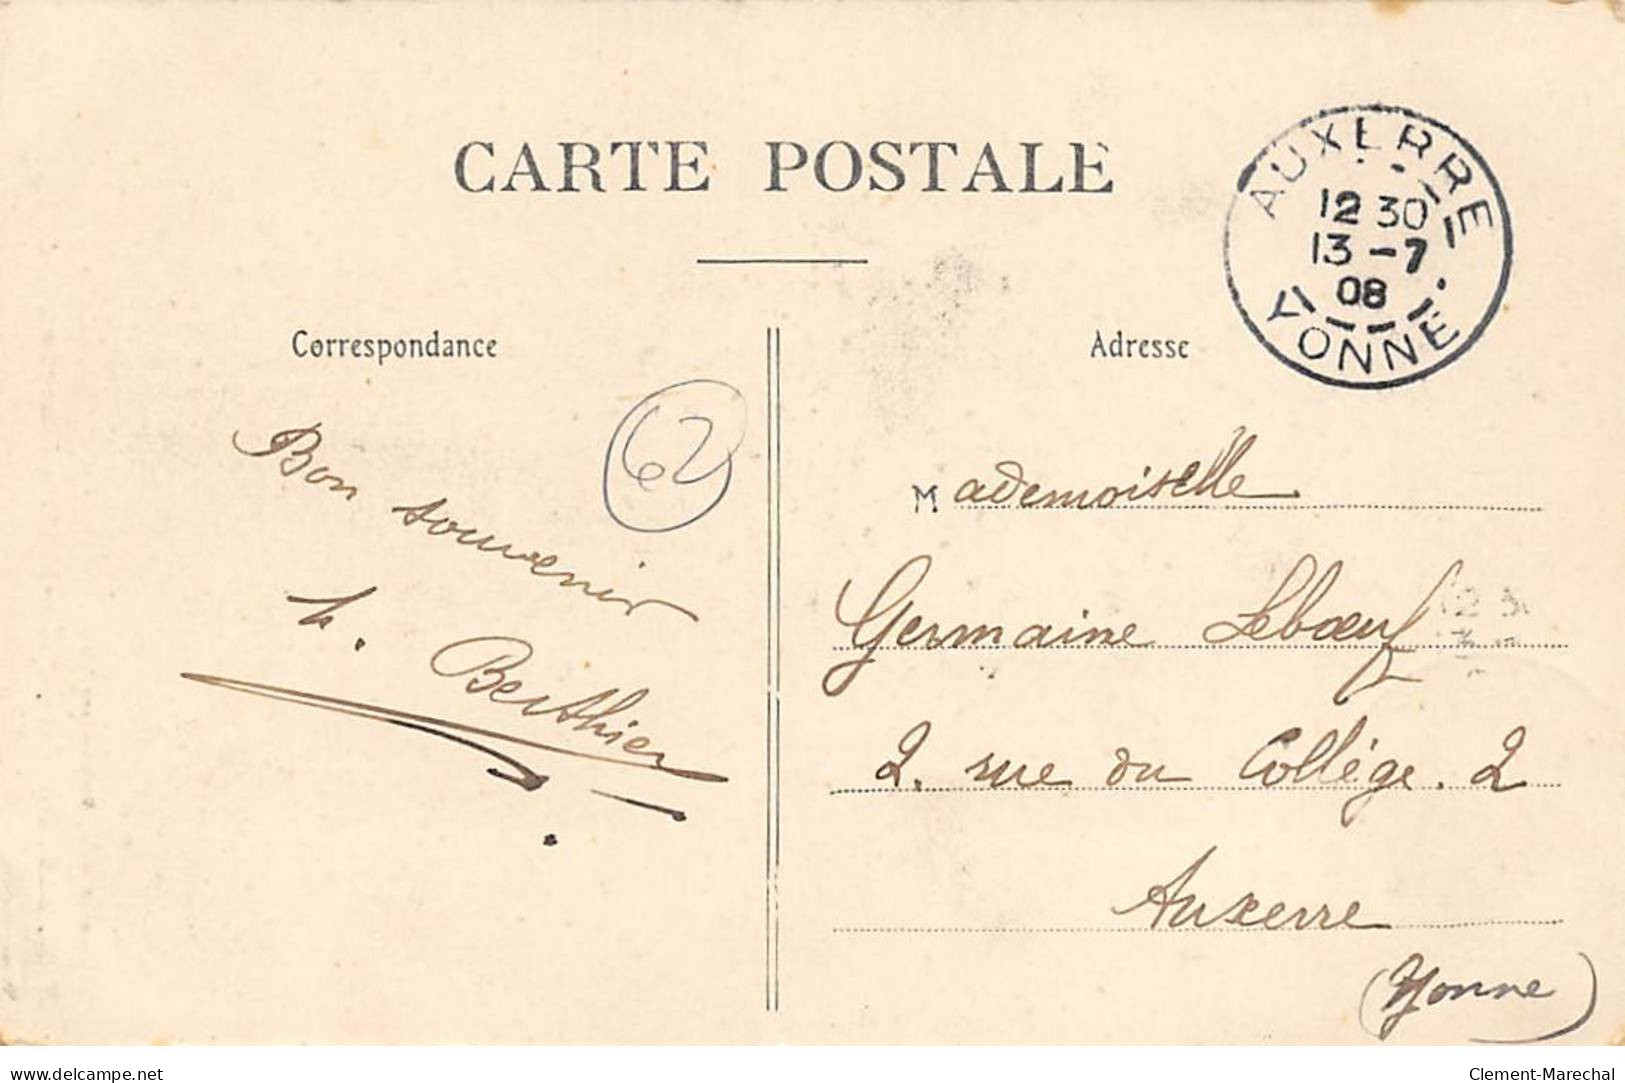 CARTE POSTALE
AUXERRE
12 30
13 -7
08
YONNE
Correspondance
Adresse
62
Bon souvenir
h. Berthier
Mademoiselle
Germaine Lebœuf
2. rue du Collège. 2
Auxerre
(Yonne)
www.delcampe.net
Clement-Marechal